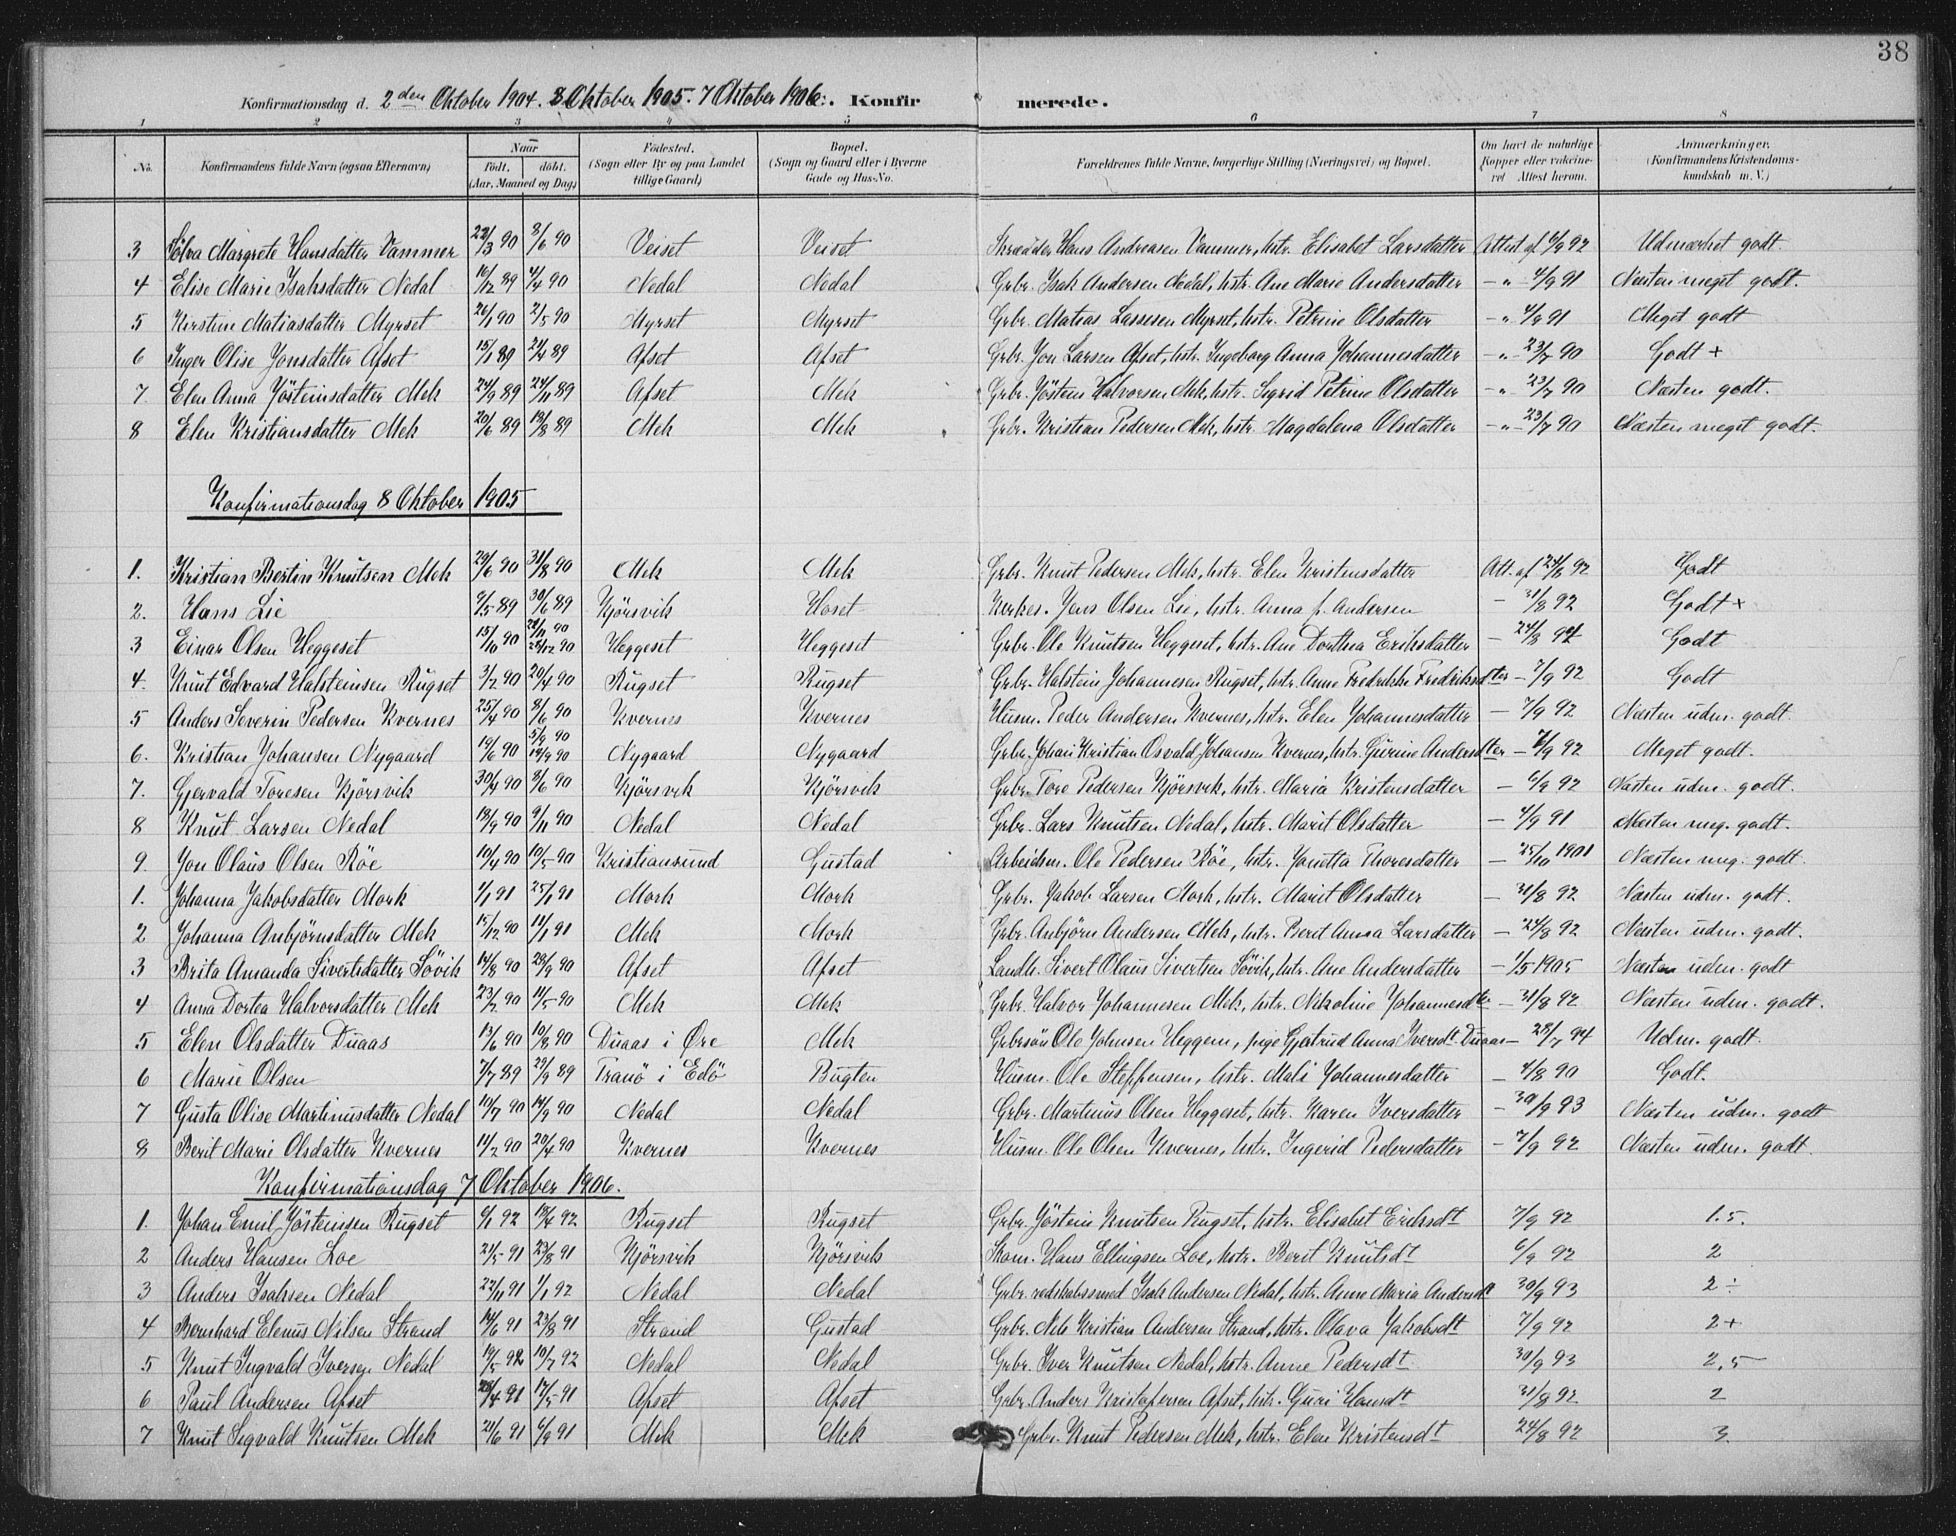 38
Konfirmationsdag d. 2den Oktober 1904. 8 Oktober 1905. 7 Oktober 1906. Konfirmerede.
1 2 3 4 5 6 7 8
No. Konfirmandens fulde Navn (ogsaa Efternavn) Naar født, døbt. (Aar, Maaned og Dag) Fødested. (Sogn eller By og paa Landet tillige Gaard) Bopæl. (Sogn og Gaard eller i Byerne Gade og Hus-No. Forældrenes fulde Navne, borgerlige Stilling (Næringsvei) og Bopæl. Om havt de naturlige Kopper eller vakcineret Attest herom. Anmærkninger. (Konfirmandens Kristendomskundskab m. V.)
3 Sølva Margrete Hansdatter Vammer 22/3 90 8/6 90 Veiset Veiset Skrædder Hans Andreasen Vammer, hstr. Elisabet Larsdatter Attest af 6/9 92 Udmærket godt.
4 Elise Marie Isaksdatter Nedal 16/12 89 4/4 90 Nedal Nedal Grbr. Isak Andersen Nedal, hstr. Ane Marie Andersdatter - " - 4/9 91 Næsten meget godt.
5 Kirstine Matiasdatter Myrset 26/1 90 2/5 90 Myrset Myrset Grbr. Matias Lassesen Myrset, hstr. Petrine Olsdatter - " 4/9 91 Meget godt
6 Inger Olise Jonsdatter Afset 15/1 89 21/4 89 Afset Afset Grbr. Jon Larsen Afset, hstr. Ingeborg Anna Johannesdatter - " - 23/7 90 Godt +
7 Elen Anna Jösteinsdatter Mek 24/9 89 24/11 89 Afset Mek Grbr. Jöstein Halvorsen Mek, hstr. Sigrid Petrine Olsdatter - " - 23/7 90 Næsten godt.
8 Elen Kristiansdatter Mek 20/6 89 18/8 89 Mek Mek Grbr. Kristian Pedersen Mek, hstr. Magdalena Olsdatter - " - 23/7 90 Næsten meget godt.
Konfirmationsdag 8 Oktober 1905
1. Kristian Bertin Knutsen Mek 29/6 90 31/8 90 Mek Mek Grbr. Knut Pedersen Mek, hstr. Elen Kristensdatter Att. af 24/8 92 Godt
2. Hans Lie 9/5 89 30/6 89 Kjörsvik Hoset Kirkes. Jens Olsen Lie, hstr. Anna f. Andersen - 31/8 92 Godt +
3 Einar Olsen Heggeset 15/10 90 25/12 90 Heggeset Heggeset Grbr. Ole Knutsen Heggeset, hstr. Ane Dorthea Eriksdatter - 24/8 92 Godt
4. Knut Edvard Halsteinsen Rugset 3/2 90 20/4 90 Rugset Rugset Grbr. Halstein Johannesen Rugset, hstr. Anne Fredrikke Fredriksdter - 7/9 92 Godt
5 Anders Severin Pedersen Kvernes 25/4 90 8/6 90 Kvernes Kvernes Husm. Peder Andersen Kvernes, hstr. Elen Johannesdatter - 7/9 92 Næsten udm. godt.
6. Kristian Johansen Nygaard 19/6 90 5/9 90 14/9 90 Nygaard Nygaard Grbr. Johan Kristian Osvald Johansen Kvernes, hstr. Gurine Andersdter - 7/9 92 Meget godt.
7. Gjervald Toresen Kjörsvik 30/4 90 8/6 90 Kjörsvik Kjörsvik Grbr. Tore Pedersen Kjörsvik, hstr. Maria Kristensdatter - 6/9 92 Næsten udm. godt.
8 Knut Larsen Nedal 18/9 90 9/11 90 Nedal Nedal Grbr. Lars Knutsen Nedal, hstr. Marit Olsdatter - 4/9 91 Næsten meg. godt.
9. Jon Olaus Olsen Röe 10/4 90 10/5 90 Kristiansund Gustad Arbeidsm. Ole Pedersen Röe, hstr. Jonetta Thoresdatter - 25/10 1901 Næsten meg. godt.
1. Johanna Jakobsdatter Mork 1/1 91 25/1 91 Mork Mork Grbr. Jakob Larsen Mork, hstr. Marit Olsdatter - 31/8 92 Næsten udm. godt.
2 Johanna Anbjörnsdatter Mek 15/12 90 11/1 91 Mek Mork Grbr. Anbjörn Andersen Mek, hstr. Berit Anna Larsdatter - 24/8 92 Næsten udm. godt.
3 Brita Amanda Sivertsdatter Sövik 14/8 90 28/9 90 Afset Afset Landh. Sivert Olaus Sivertsen Sövik, hstr. Ane Andersdatter - 1/5 1905 Næsten udm. godt
4 Anna Dortea Halvorsdatter Mek 23/2 90 11/5 90 Mek Mek Grbr. Halvor Johannesen Mek, hstr. Nikoline Johannesdter - 31/8 92 Næsten udm. godt.
5 Elen Olsdatter Duaas 13/6 90 10/8 90 Duaas i Øre Mek Grbrsön Ole Johnsen Heggem, pige Gjertrud Anna Iversdt Duaas - 28/7 94 Udm. godt.
6 Marie Olsen 7/7 89 29/9 89 Tranö i Edö Bugten Husm. Ole Steffensen, hstr. Mali Johannesdatter - 4/8 90 Godt.
7 Gusta Olise Martinusdatter Nedal 10/7 90 14/9 90 Nedal Nedal Grbr. Martinus Olsen Heggeset, hstr. Karen Iversdatter - 30/9 93 Næsten udm. godt
8 Berit Marie Olsdatter Kvernes 11/2 90 20/4 90 Kvernes Kvernes Husm. Ole Olsen Kvernes, hstr. Ingerid Pedersdatter - 7/9 92 Næsten udm. godt.
Konfirmationsdag 7 Oktober 1906.
1. Johan Emil Jösteinsen Rugset 6/1 92 18/4 92 Rugset Rugset Grbr. Jöstein Knutsen Rugset, hstr. Elisabet Eriksdt 7/9 92 1.5.
2 Anders Hansen Loe 21/5 91 23/8 91 Kjörsvik Kjörsvik Skom. Hans Ellingsen Loe, hstr. Berit Knutsdt 6/9 92 2
3 Anders Isaksen Nedal 27/11 91 1/1 92 Nedal Nedal Grbr. redskabssmed Isak Andersen Nedal, hstr. Anne Maria Andersdt 30/9 93 2 ÷
4 Bernhard Elenus Nilsen Strand 14/6 91 23/8 91 Strand Gustad Grbr. Nils Kristian Andersen Strand, hstr. Olava Jakobsdt 7/9 92 2+
5 Knut Ingvald Iversen Nedal 19/5 92 10/7 92 Nedal Nedal Grbr. Iver Knutsen Nedal, hstr. Anne Pedersdt 30/9 93 2,5
6 Paul Andersen Afset 28/4 91 17/5 91 Afset Afset Grbr. Anders Kristofersen Afset, hstr. Guri Hansdt 31/8 92 2
7 Knut Sigvald Knutsen Mek 21/6 91 6/9 91 Mek Mek Grbr. Knut Pedersen Mek, hstr. Elen Kristensdt 24/8 92 3.